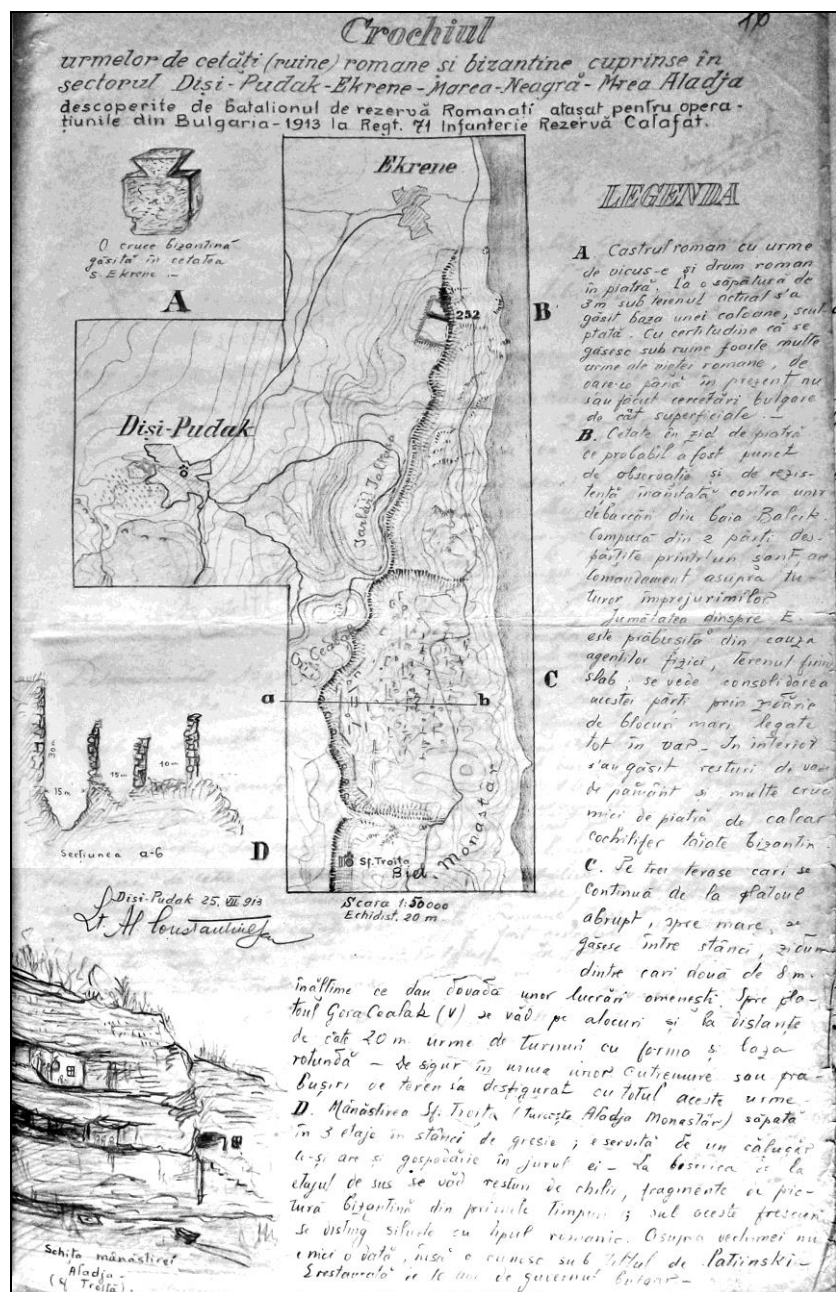 10
Crochiul
urmelor de cetăti (ruine) romane si bizantine cuprinse în
sectorul Diși-Pudak-Ekrene-Marea-Neagră-Mrea Aladja
descoperite de Batalionul de rezervă Romanati atașat pentru opera-
țiunile din Bulgaria-1913 la Regt. 71 Infanterie Rezervă Calafat.
O cruce bizantină
găsită în cetatea
s. Ekrene –
A
Ekrene
252
B
Diși-Pudak
Coalak
a
b
C
30m
15m
15m
10m
Secțiunea a-b
D
Sf. Troita
Monastăr
Diși-Pudak 25. VII 913
Lt. Al Constantinescu
Scara 1:50000
Echidist. 20 m
LEGENDA
A Castrul roman cu urme
de vicus-e și drum roman
în piatră. La o săpătură de
3m sub terenul actual s'a
găsit baza unei coloane, scul
ptată. Cu certitudine că se
găsesc sub ruine foarte multe
urme ale vieței romane, de
oare-ce până în prezent nu
sau făcut cercetări bulgare
de cât superficiale. –
B. Cetate în zid de piatră
ce probabil a fost punct
de observație și de rezis-
tență înaintată contra unor
debarcări din baia Balcik
Compusă din 2 părți des-
părțite printr'un șanț, are
Comandament asupra tu-
turor împrejurimilor
Jumătatea dinspre E.
este prăbușită din cauza
agenților fizici, terenul fiind
slab; se vede consolidarea
acestei părti prin zidărie
de blocuri mari legate
tot în var – In interior
s'au găsit resturi de vase
de pământ si multe cruci
mici de piatră de calcar
cochilifer tăiate bizantin.
C. Pe trei terase cari se
continuă de la platoul
abrupt, spre mare, se
găsesc între stânci, ziduri
dintre cari două de 8 m.
înălțime ce dau dovadă unor lucrări omenești. Spre pla-
toul Gora Coalak (V) se văd pe alocuri și la distanțe
de câte 20 m. urme de turnuri cu forma și baza
rotundă – De sigur în urma unor Cutremure sau pra-
bușiri de teren s'a desfigurat cu totul aceste urme.
D. Mânăstirea Sf. Troița (turcește Aladja Monastăr) săpată
în 3 etaje în stânci de gresie; e servită de un călugăr
ce-și are și gospodărie în jurul ei – La biserica de la
etajul de sus se văd resturi de chilii, fragmente de pic-
tură bizantină din primele timpuri; sub aceste frescuri
se disting siluete cu tipul romanic. Asupra vechimei nu
e nici o dată, însă e cunosc sub titlul de Latiinski –
E restaurată de guvernul bulgar –
Schița mânăstirei
Aladja -
(Sf Troiță)